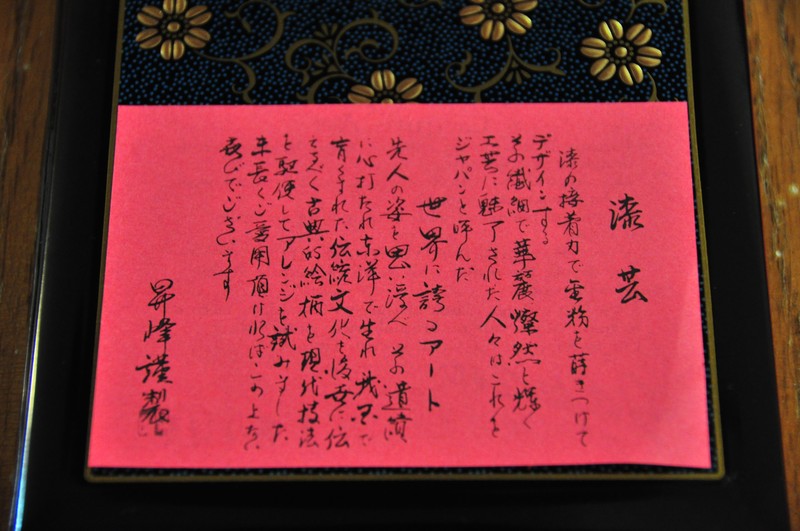 漆芸
漆の接着力で金粉を蒔きつけて
デザインする
その繊細で華麗燦然と輝く
工芸に魅了された人々はこれを
ジャパンと呼んだ
世界に誇るアート
先人の姿を思い浮べその遺蹟
に心打たれ東洋で生れ我国で
育くまれた伝統文化を後世に伝
えるべく古典的絵柄を現代技法
を駆使してアレンジを試みました
末長くご愛用頂ければこの上ない
喜びでございます
昇峰謹製